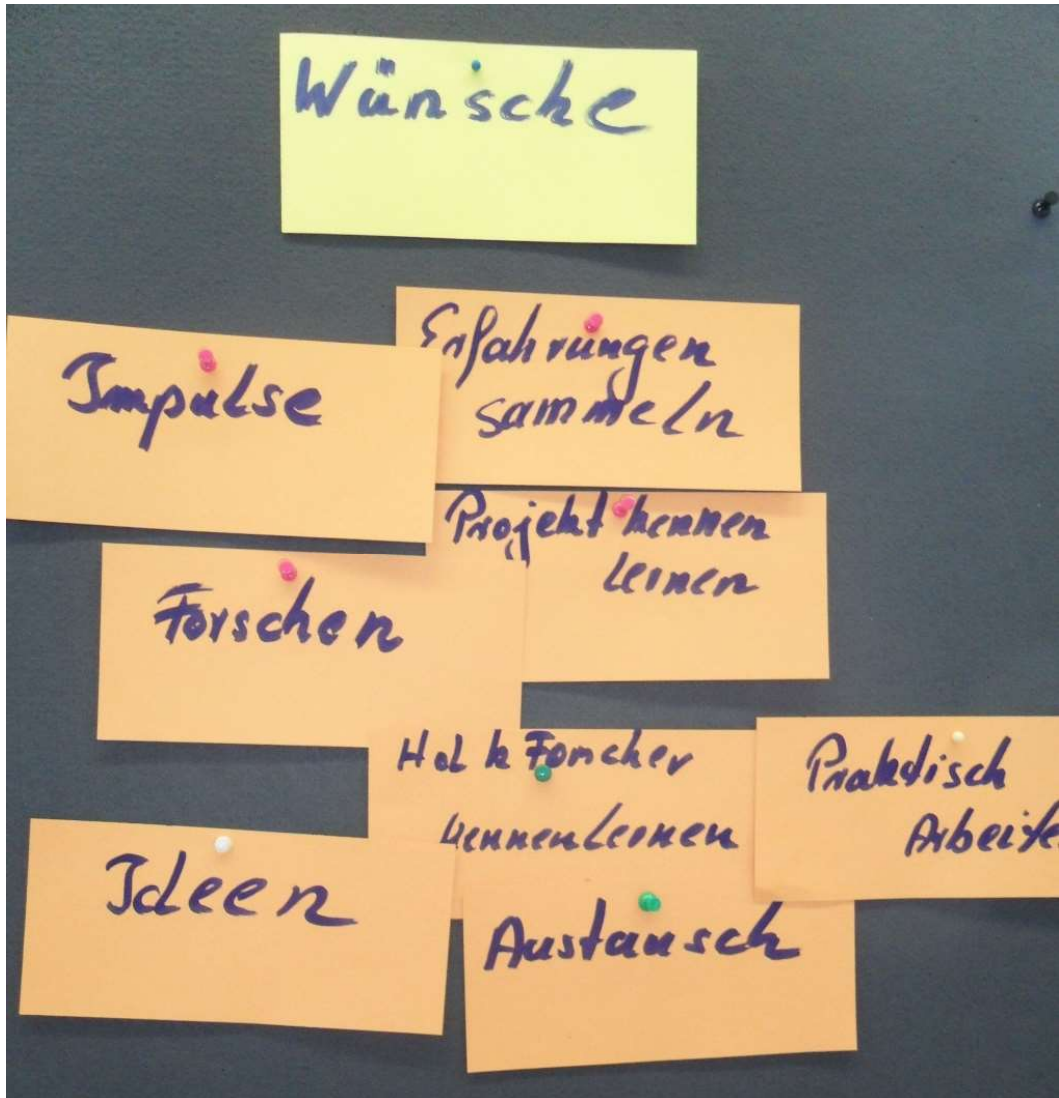 Wünsche
Erfahrungen
sammeln
Impulse
Projekt kennen
lernen
Forschen
Forscher
kennenlernen
Praktisch
Arbeite
Ideen
Austausch